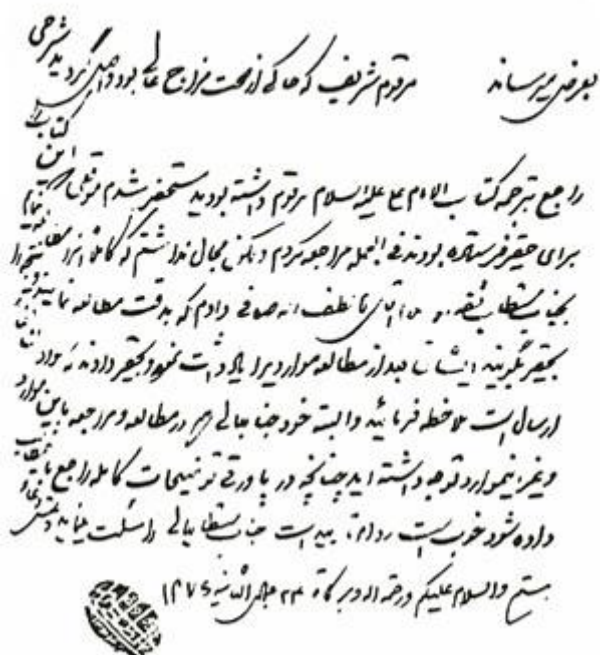 بعرض میرساند مرقوم شریف که حاکی از صحت مزاج عالی بود واصل گردید شرحی
راجع بترجمه کتاب الامام علی علیه السلام مرقوم داشته بودید مستحضر شدم موقعی این کتاب را
برای حقیر فرستاده بودند فی الجمله مراجعه کردم ولکن مجال نداشتم که کاملا آنرا مطالعه نمایم
بجناب مستطاب ثقة آقای لطف اله صافی دادم که بدقت مطالعه نمایند و نتیجه را
بحقیر بگویند ایشان بعد از مطالعه مواردی را یادداشت نموده و بحقیر دادند که سواد
ارسال است ملاحظه فرمائید و البته خود جنابعالی هم در مطالعه و مراجعه باین موارد
و غیر اینموارد توجه داشته اید چنانچه در پاورقی توضیحات کامله راجع باین مطالب
داده شود خوب است جناب مستطابعالی را مسئلت مینماید و ملتمس دعا
هستم والسلام علیکم ورحمة اله وبرکاته ۲۴ جمادی الثانیه ۱۳۷۶